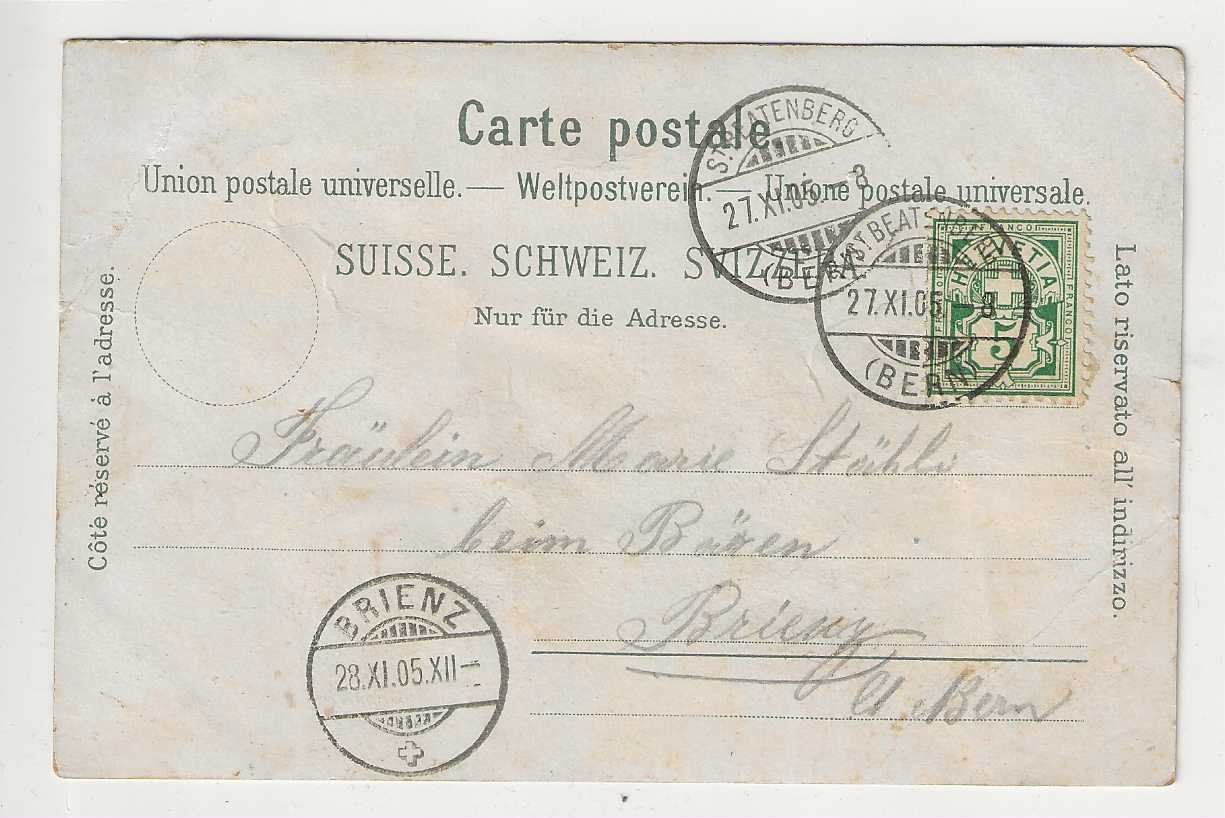 Carte postale
Union postale universelle. — Weltpostverein. — Unione postale universale.
SUISSE. SCHWEIZ. SVIZZERA.
Nur für die Adresse.
Côté réservé à l'adresse.
Lato riservato all' indirizzo.
ST. BEATENBERG
27.XI.05.-8
(BERN)
ST. BEATENBERG
27.XI.05.-8
(BERN)
FRANCO
HELVETIA
FRANCO
5
Fräulein Marie Stähli
beim Bären
Brienz
Ct. Bern
BRIENZ
28.XI.05.XII-